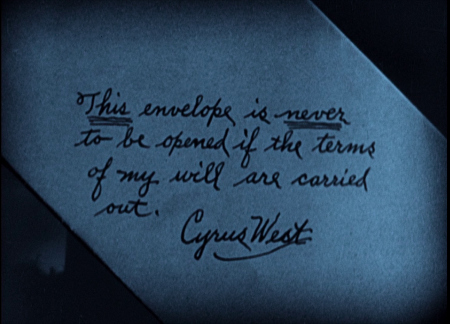 This envelope is never
to be opened if the terms
of my will are carried
out.
Cyrus West